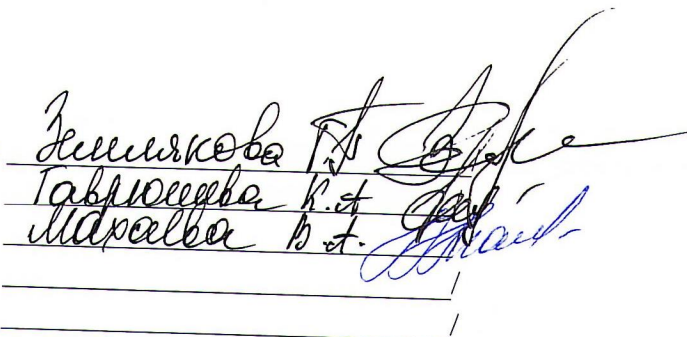 Землякова Г.А
Гаврюшева К.А
Махаева В.А.